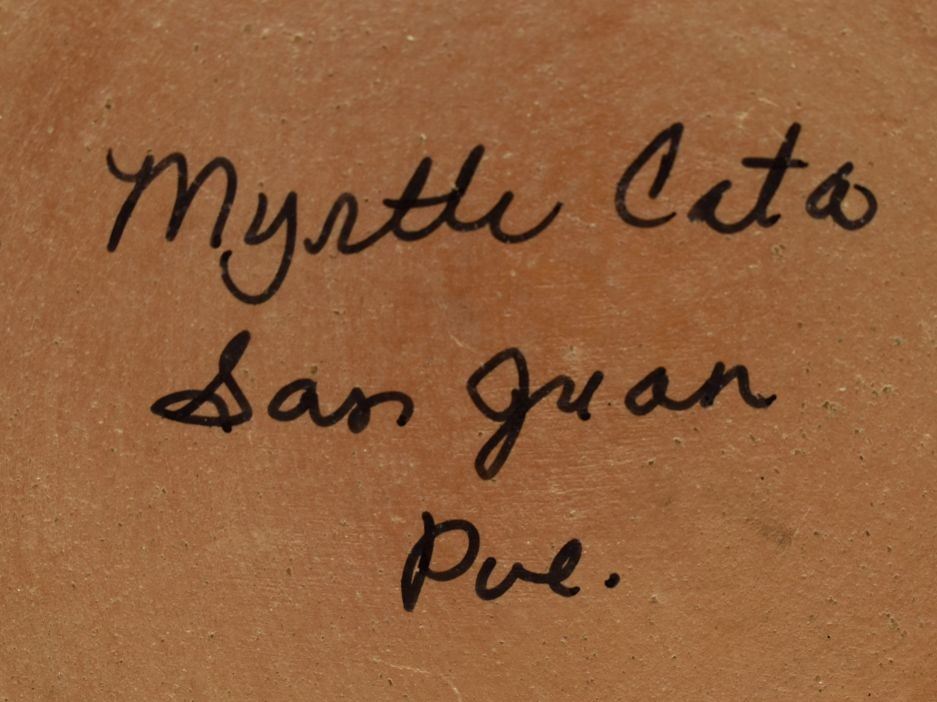 Myrtle Cata
San Juan
Pue.